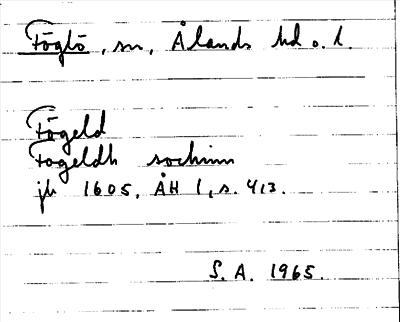 Föglö, sn, Ålands hd o. l.
Fögeld
Fogeldh sochnn
jb 1605, ÅH 1, s. 413.
S. A. 1965.